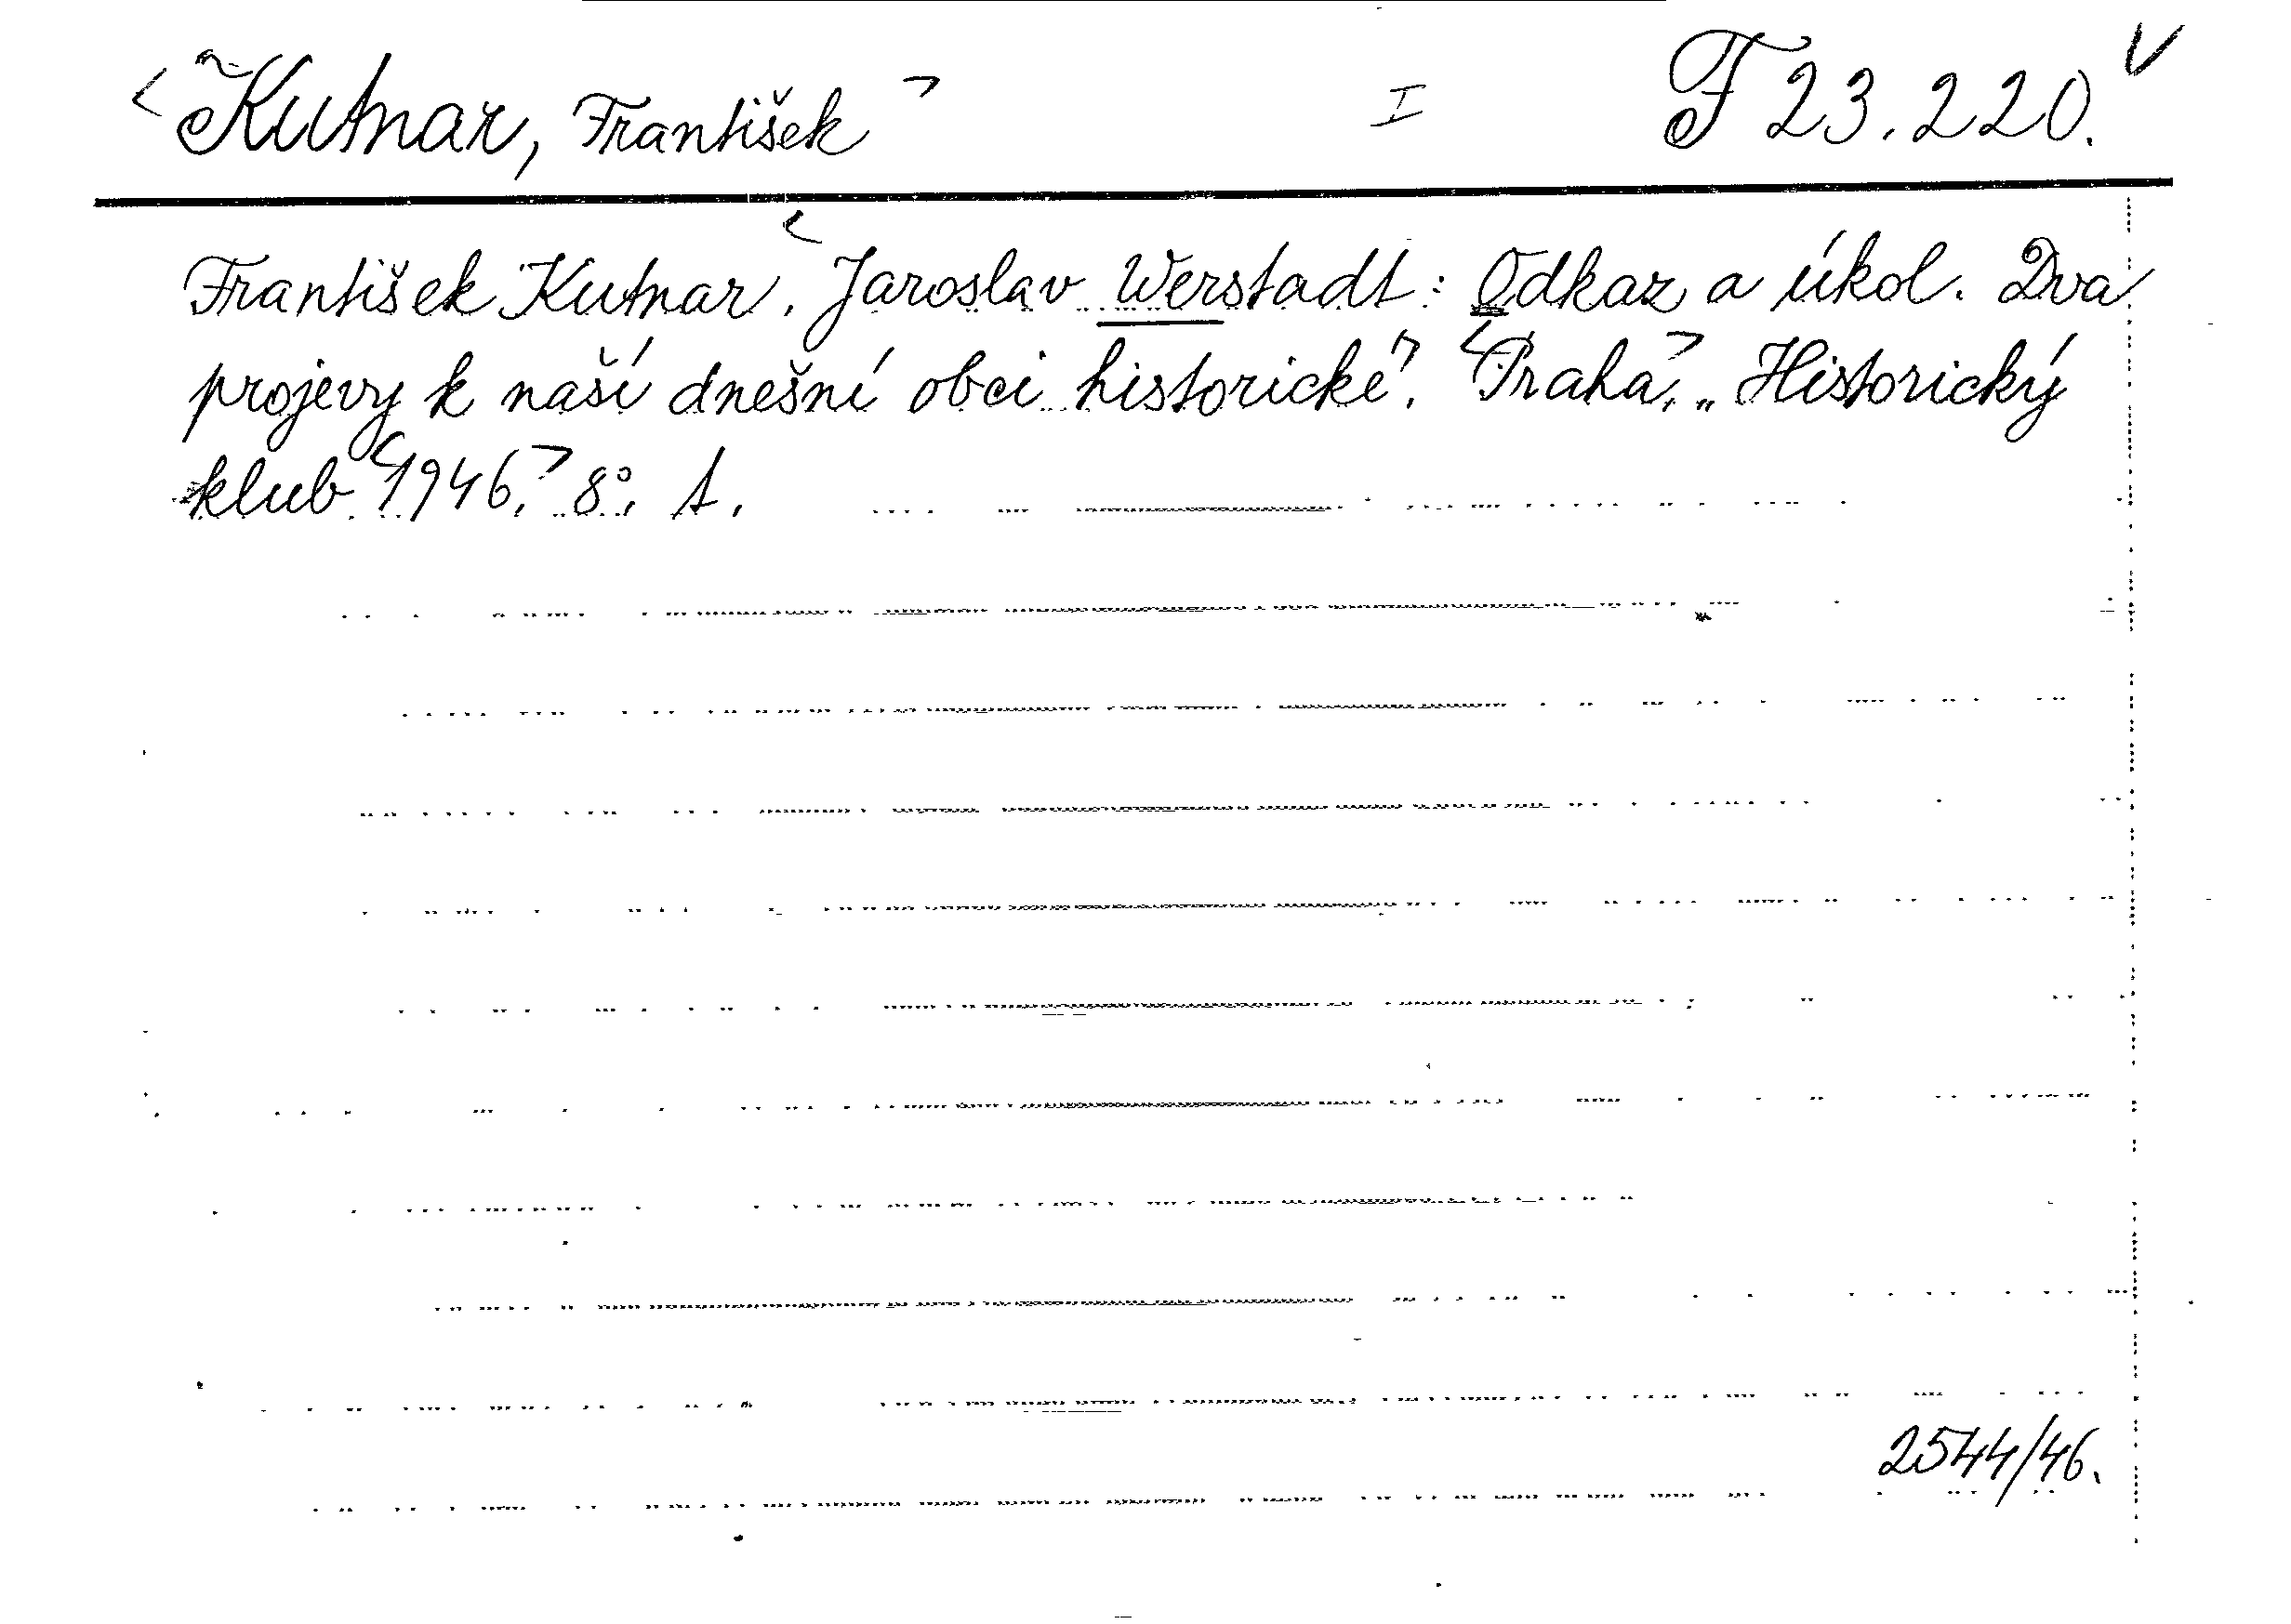 Kutnar, František I F 23.220.
František Kutnar, Jaroslav Werstadt: Odkaz a úkol. Dva
projevy k naší dnešní obci historické. Praha, „Historický
klub 1946. 8°. t.
2544/46.